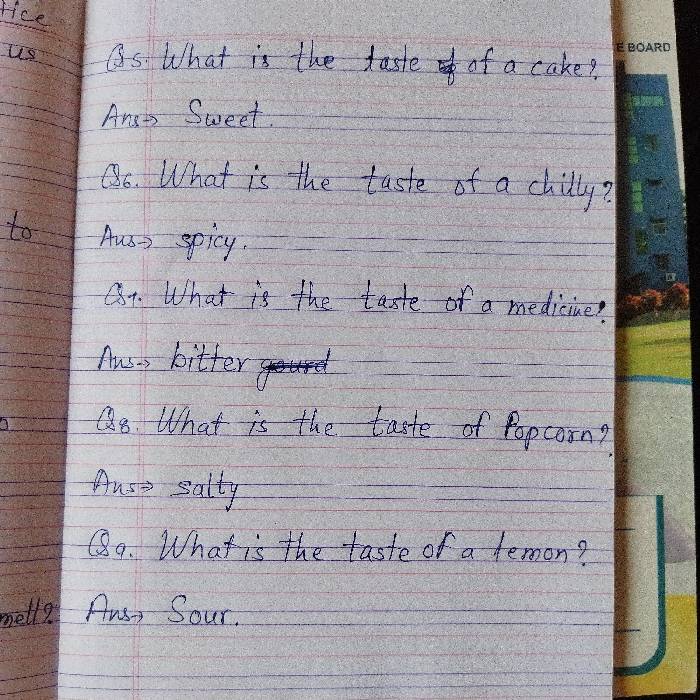 tice
us
to
mell?
Q5. What is the taste of a cake?
Ans→ Sweet.
Q6. What is the taste of a chilly?
Ans→ spicy.
Q7. What is the taste of a medicine?
Ans→ bitter gourd
Q8. What is the taste of Popcorn?
Ans→ salty
Q9. What is the taste of a lemon?
Ans→ Sour.
E BOARD